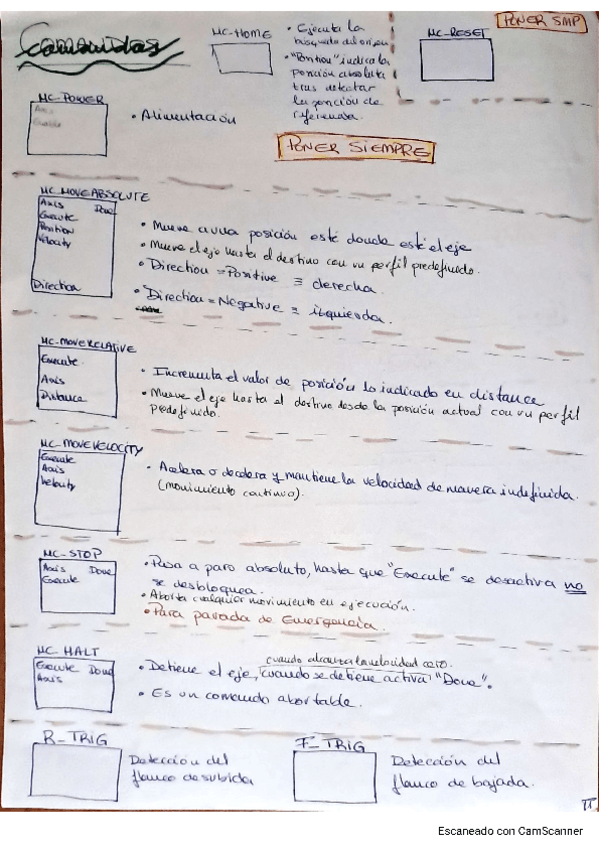 Comandos
MC-HOME
• Ejecuta la
búsqueda del origen
• "Position" indica la
posición absoluta
tras detectar
la posición de
referencia.
PONER SMP
MC-RESET
MC-POWER
Axis
Enable
• Alimentación
PONER SIEMPRE
MC-MOVEABSOLUTE
Axis Done
Execute
Position
Velocity
Direction
• Mueve a una posición esté donde esté el eje
• Mueve el eje hasta el destino con un perfil predefinido.
• Direction = Positive ≡ derecha.
• Direction = Negative ≡ izquierda.
MC-MOVERELATIVE
Execute
Axis
Distance
• Incrementa el valor de posición lo indicado en distance
• Mueve el eje hasta el destino desde la posición actual con un perfil
predefinido.
MC-MOVEVELOCITY
Execute
Axis
Velocity
• Acelera o decelera y mantiene la velocidad de manera indefinida.
(movimiento continuo).
MC-STOP
Axis Done
Execute
• Pasa a paro absoluto, hasta que "Execute" se desactiva no
se desbloquea.
• Aborta cualquier movimiento en ejecución.
• Para parada de Emergencia.
MC HALT
Execute Done
Axis
cuando alcanza la velocidad cero.
• Detiene el eje, cuando se detiene activa "Done".
• Es un comando abortable.
R_TRIG
Detección del
flanco de subida
F_TRIG
Detección del
flanco de bajada.
Escaneado con CamScanner